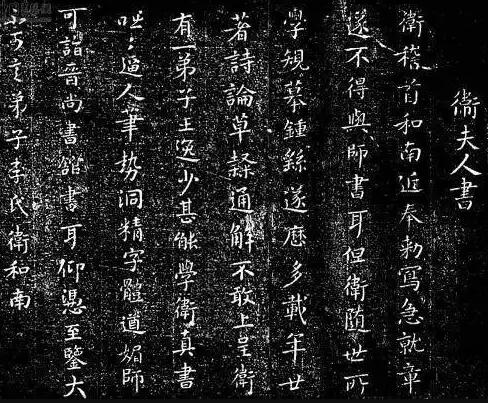 衛夫人書
衛稽首和南近奉勅寫急就章
遂不得與師書耳但衛随世所
學規摹鍾繇遂歷多載年廿
著詩論草隸通解不敢上呈衛
有一弟子王逸少甚能學衛真書
咄〻逼人筆势洞精字體遒媚師
可詣晉尚書館書耳仰憑至鑒大
不可言弟子李氏衛和南